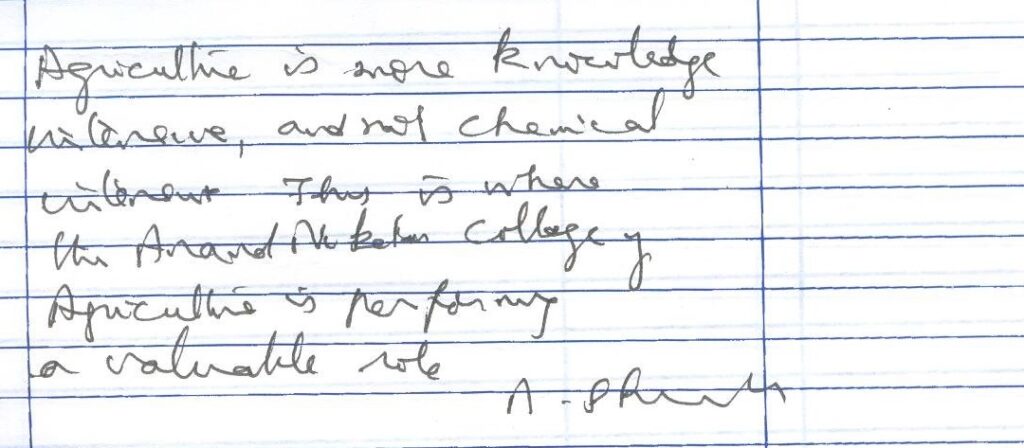 Agriculture is more knowledge
intensive, and not chemical
intensive This is where
the Anand Niketan College of
Agriculture is performing
a valuable role
A.